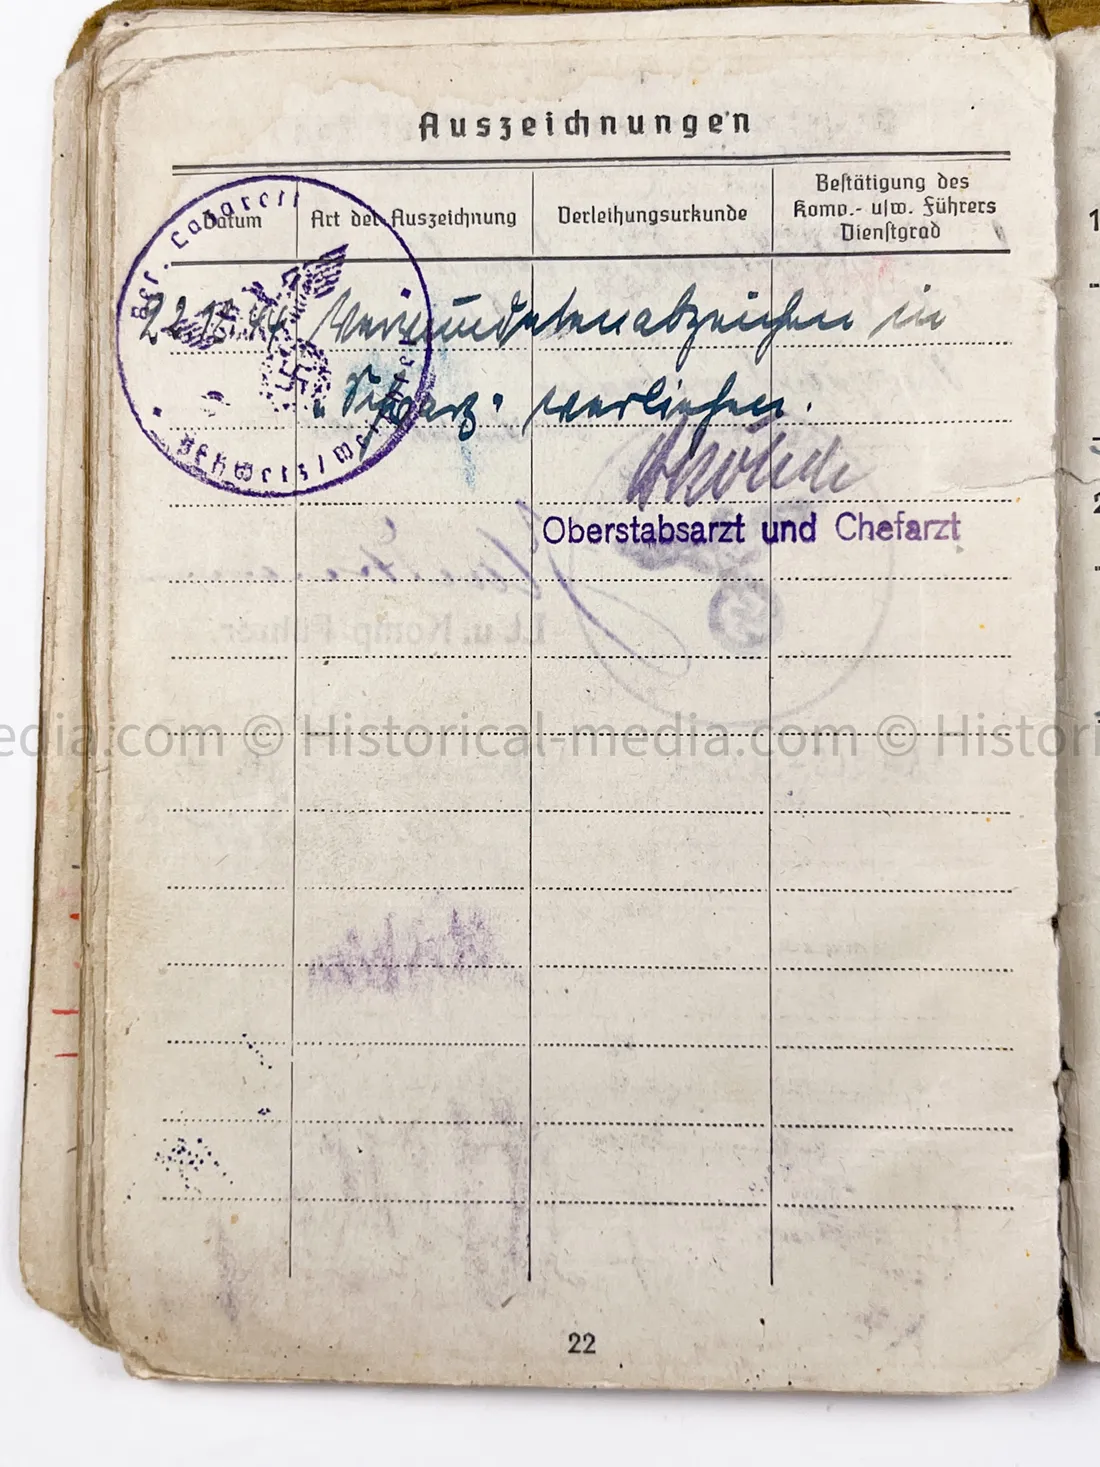 Auszeichnungen
Datum
Art der Auszeichnung
Verleihungsurkunde
Bestätigung des
Komp.- usw. Führers
Dienstgrad
Res. Lazarett
Schwetz/Weichsel
22 44 Verwundetenabzeichen in
„Schwarz“ verliehen.
Oberstabsarzt und Chefarzt
Lt. u. Komp. Führer.
edia.com © Historical-media.com © Histori
22